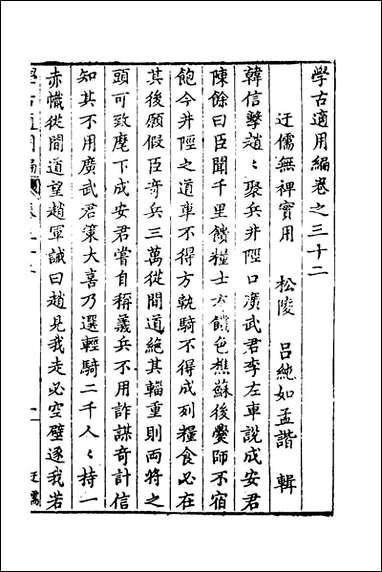 學古適用編卷之三十二
迂儒無裨實用 松陵 呂純如孟諧 輯
韓信擊趙〻聚兵井陘口廣武君李左車說成安君
陳餘曰臣聞千里饋糧士有饑色樵蘇後爨師不宿
飽今井陘之道車不得方軌騎不得成列糧食必在
其後願假臣奇兵三萬從間道絶其輜重則兩將之
頭可致麾下成安君嘗自稱義兵不用詐謀奇計信
知其不用廣武君策大喜乃選輕騎二千人〻持一
赤幟從間道望趙軍誡曰趙見我走必空壁逐我若
學古適用編 卷三十二 一 迂儒